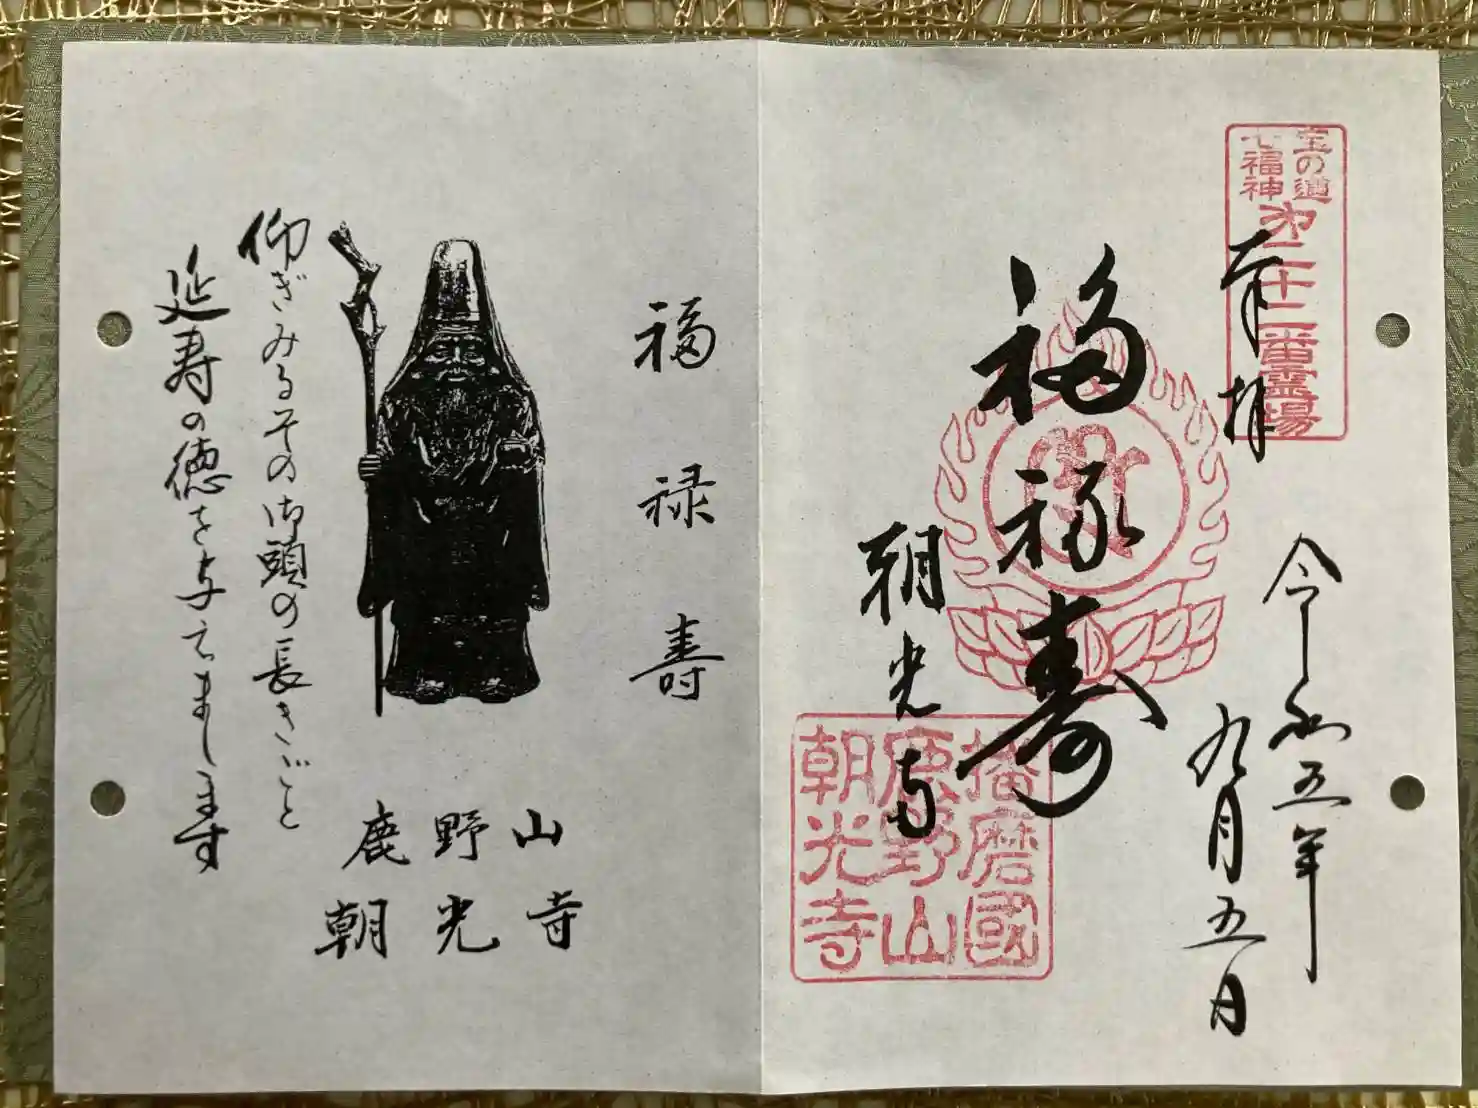 宝の道
七福神
第二十二番霊場
奉拝
令和五年
九月五日
福禄寿
朝光寺
播磨國
鹿野山
朝光寺
福禄寿
仰ぎみるその御頭の長きごと
延寿の徳を与えまします
鹿野山
朝光寺